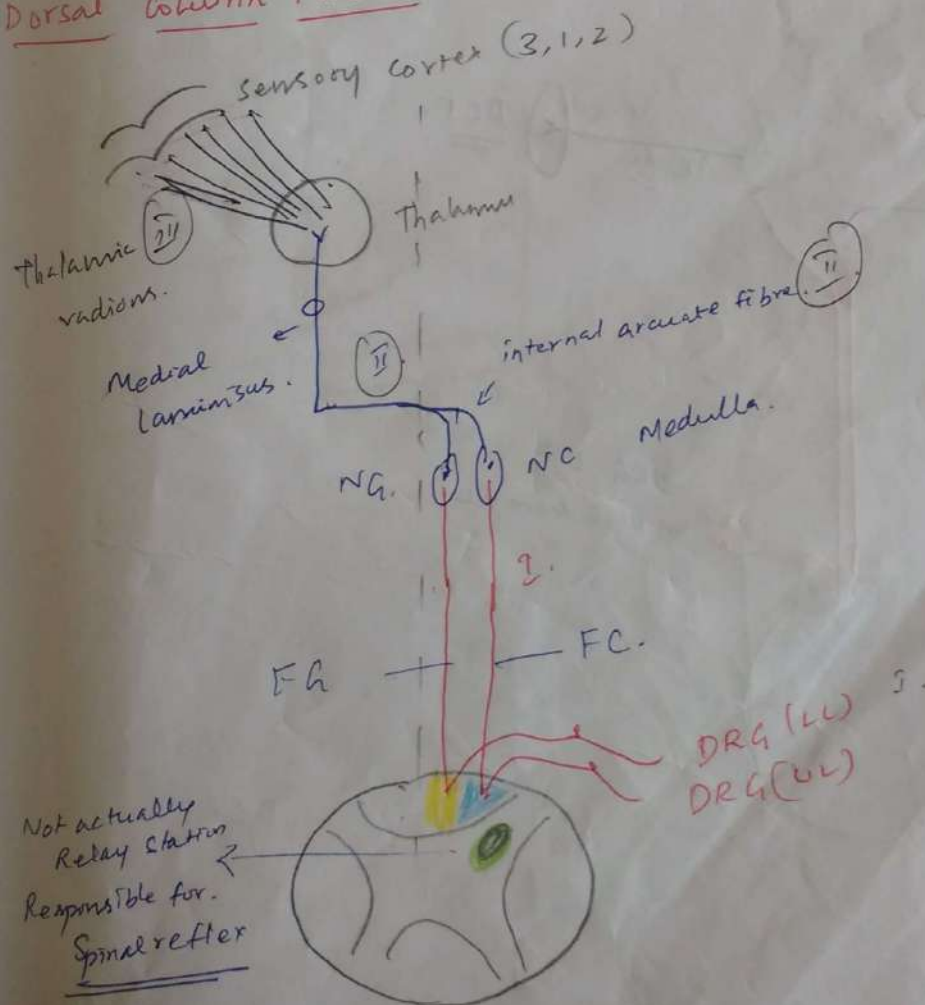 Dorsal Column
Sensory cortex (3,1,2)
Thalamus
Thalamic
radions.
II
internal arcuate fibre.
II
Medial
laminisus.
Medulla.
NG.
NC
I.
FG
FC.
DRG (LL) I.
DRG (UL)
Not actually
Relay Station
Responsible for.
Spinal reflex